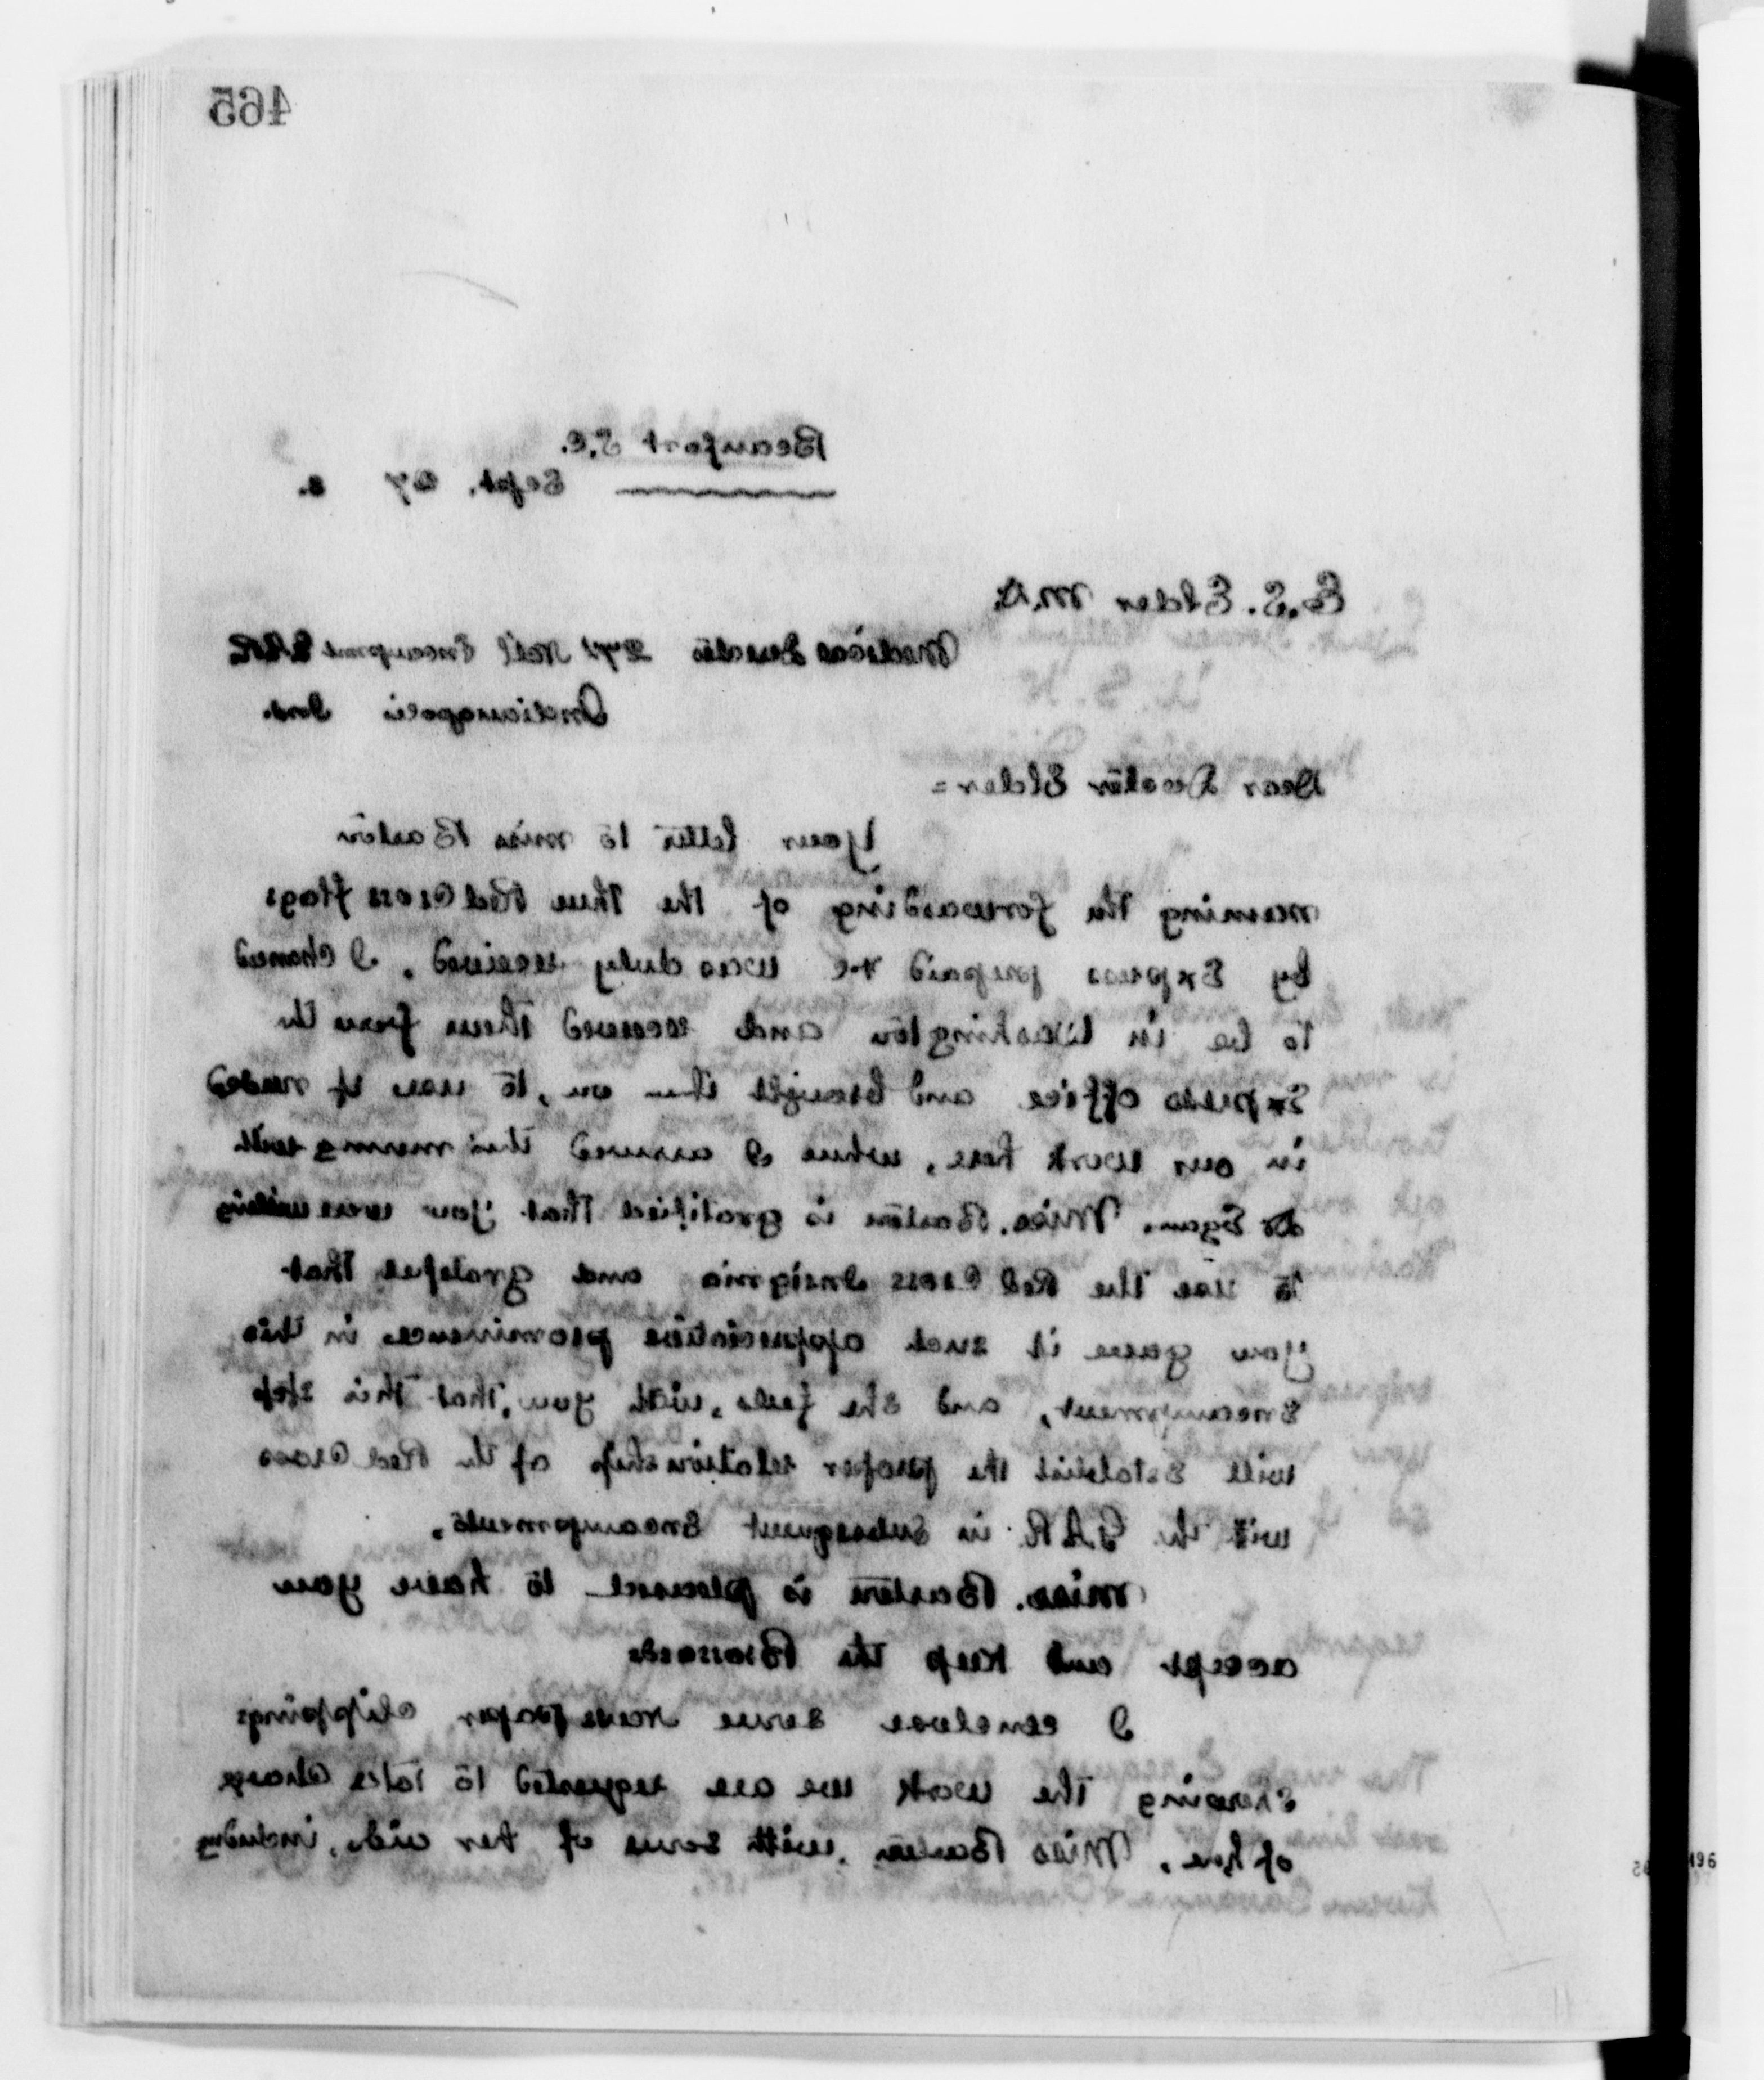 465
Beaufort S.C.
Sept. 27 3.
E. S. Elder M.D.
Medical Director 27th Nat'l Encampmt G.A.R.
Indianapolis Ind.
Dear Doctor Elder =
Your letter to Miss Barton
naming the forwarding of the three Red Cross flags
by Express prepaid was duly received. I chanced
to be in Washington and received them from the
Express office and brought them on, to use if needed
in our work here, where I arrived this morning with
Dr Egan. Miss. Barton is gratified that you were willing
to use the Red Cross Insignia and grateful that
you gave it such appreciative prominence in this
Encampment, and she feels, with you, that this step
will establish the proper relationship of the Red Cross
with the G.A.R. in subsequent Encampments.
Miss. Barton is pleased to have you
accept and keep the Brassards
I enclose some newspaper clippings
showing the work we are requested to take charge
of here. Miss Barton, with some of her aids, including